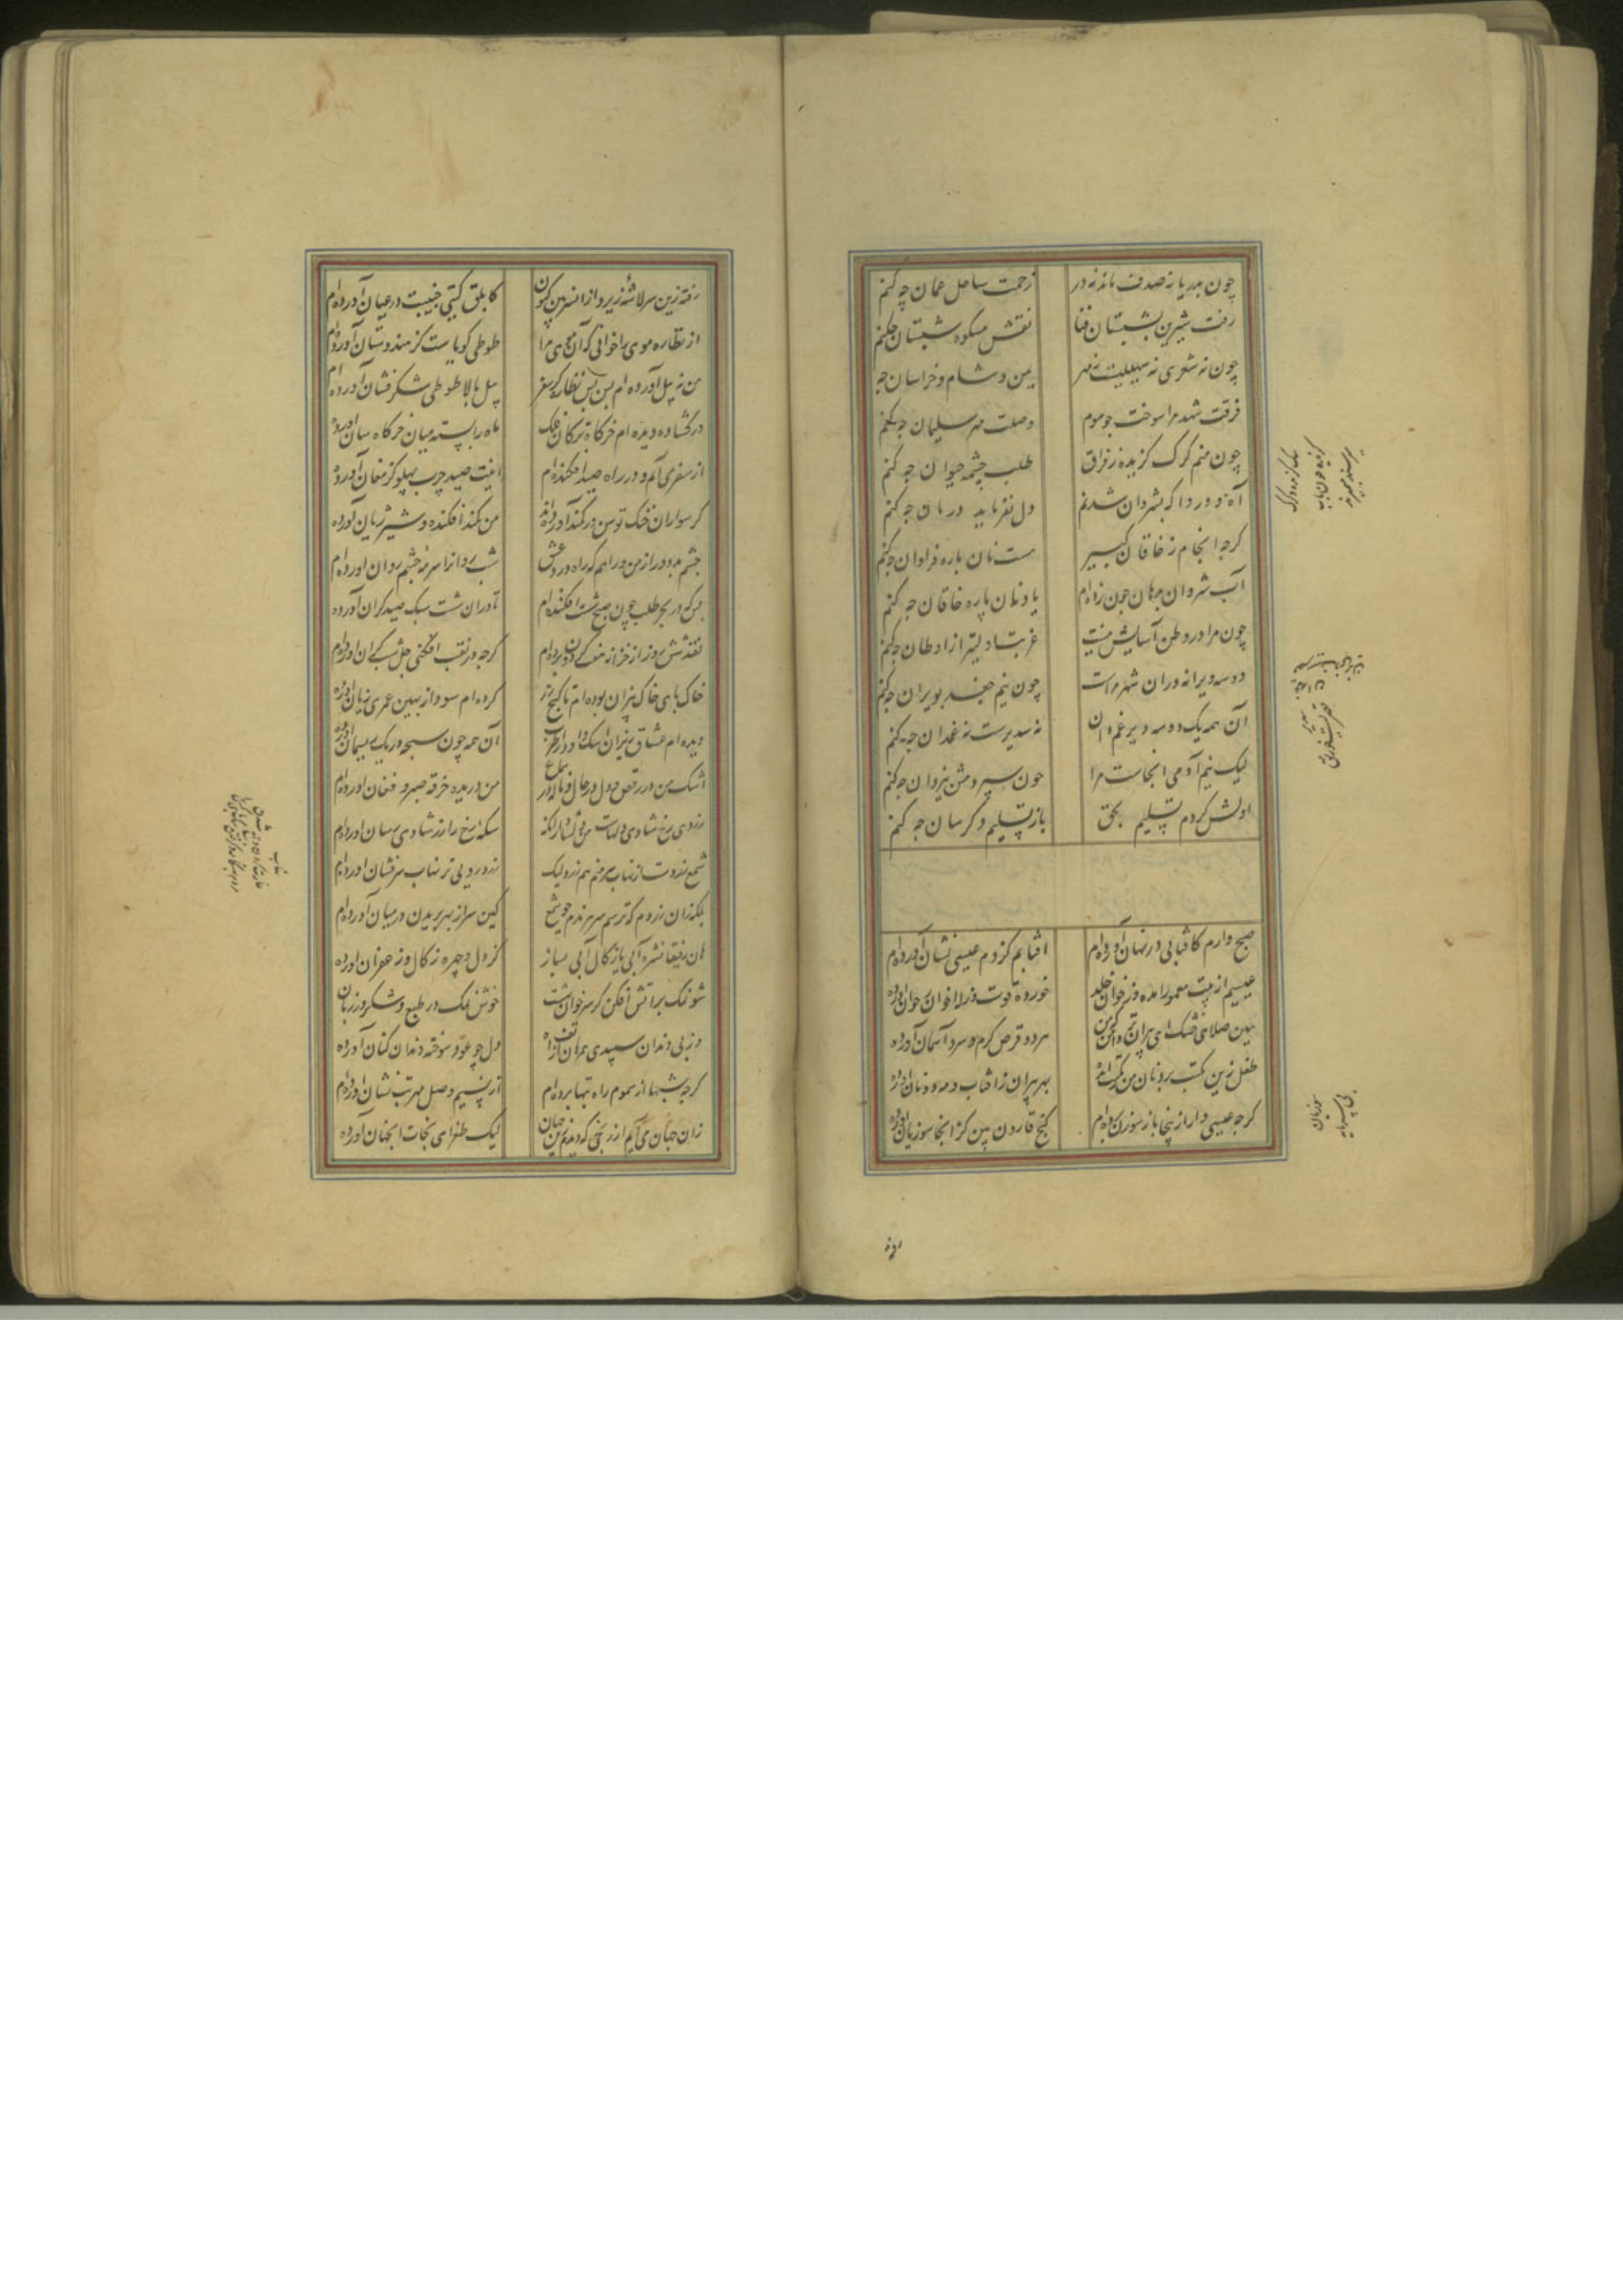 چون بدریا نه صدف ماند نه در
زحمت ساحل عمان چه کنم
رفت شیرین بشبستان فنا
نقش مشکوه شبستان چکنم
چون نه شعری نه سهیلیت نه مهر
یمن و شام و خراسان چه
فرقت شهد مرا سوخت چو موم
وصلت مهر سلیمان چه کنم
چون منم کرک کزیده ز فراق
طلب چشمه حیوان چه کنم
آه و وردا که بشروان شدنم
دل نفرماید درمان چه کنم
کرچه انجام ز خاقان کبیر
هست نان باره فراوان چکنم
آب شروان بدهان چون زده ام
یاد نان پاره خاقان چه کنم
چون مرا در وطن آسایش نیست
غربت اولیتر از اوطان چکنم
دو سه ویرانه در ان شهر مراست
چون نیم جغد بویران چکنم
آن همه یک دو سه دیر غم دان
نه سدیرست نه غمدان چه کنم
لیک نیم آدمی انجاست مرا
چون سپردمش بیزدان چکنم
اولش کردم تسلیم بحق
باز تسلیم دکر سان چه کنم
صبح وارم کافتابی در نهان آورده ام
افتابم کز دم عیسی نشان آورده ام
عیسیم از بیت معمور امده وز خوان خلد
خورده قوت وزله اخوان را ز خوان اورده
هین صلای خشک ای پیران تر دامن که من
هر دو قرص کرم و سرد آسمان آورده
طفل زین مکتب برد نان من ز مکتب امده
بهر پیران ز افتاب و مه دو نان اورده
کرچه عیسی وار از ینجا باز سوزن برده ام
کنج قارون بین کز انجا سوزیان اورده
رفته
رفته زین سر لاشه زیر و از انسر بین کنون
کابلق کیتی جنیبت در عنان آورده ام
از نظاره موی را جانی که آن موی مرا
طوطی کویاست کز هندوستان آورده ام
من نه پیل آورده ام بس بس نظاره کز سفر
پیل بالا طوطی شکر فشان آورده ام
در کشاده دیده ام خرکاه ترکان فلک
ماه را بسته میان خرکاه سان اورده
از سفر می آیم و در راه صید افکنده ام
اینت صید چرب پهلو کز مغان آورده
کر سواران خنک توسن در کمند آورده اند
من کمند افکنده و شیر ژیان آورده
چشم بد دور از من و راهم که راه ورد عشق
شب روانرا سرمه چشم روان اورده ام
بس که در بحر طلب چون صبح شست افکنده ام
تا در ان شست سبک صید کران آورده
نقد شش روز از خزانه هفت کردون برده ام
کرچه در نقب افکنی چل شب کران اورده ام
خاک پای خاک بیزان بوده ام تا کنج زر
کرده ام سود ار بهین عمری زیان اورده
دیده ام عشاق ریزان اشک داود از طرب
آن همه چون سبحه در یک ریسمان اورده
اشک من در رقص و دل در حال و ناله در سماع
من دریده خرقه صبر و فغان اورده ام
زردی رخ شادی دلهاست من بی شادی انکه
سکه رخ را زر شادی رسان اورده ام
شمع زردست از نهاب سر منم هم زرد لیک
زرد رویی نز نهاب سر فشان اورده ام
بلکه زان زردم که ترسم سر بریدم چو شمع
کین سر از بهر بریدن در میان آورده ام
ان رفیقا نشره آبی یا زکال آبی بساز
کز دل و چهره زکال و زعفران اورده
شو نمک بر آتش افکن کز سر خوان بهشت
خوش نمک در طبع و شکر در زبان
وز پی دندان سپیدی همرهان از تف آه
دل چو عود سوخته دندان کنان آورده
کرچه شبها از سموم راه تبها برده ام
از نسیم وصل مهر تب نشان اورده ام
زان جهان می آیم از رنجی که دیدم زین جهان
لیک طغرای نجات انجهان اورده